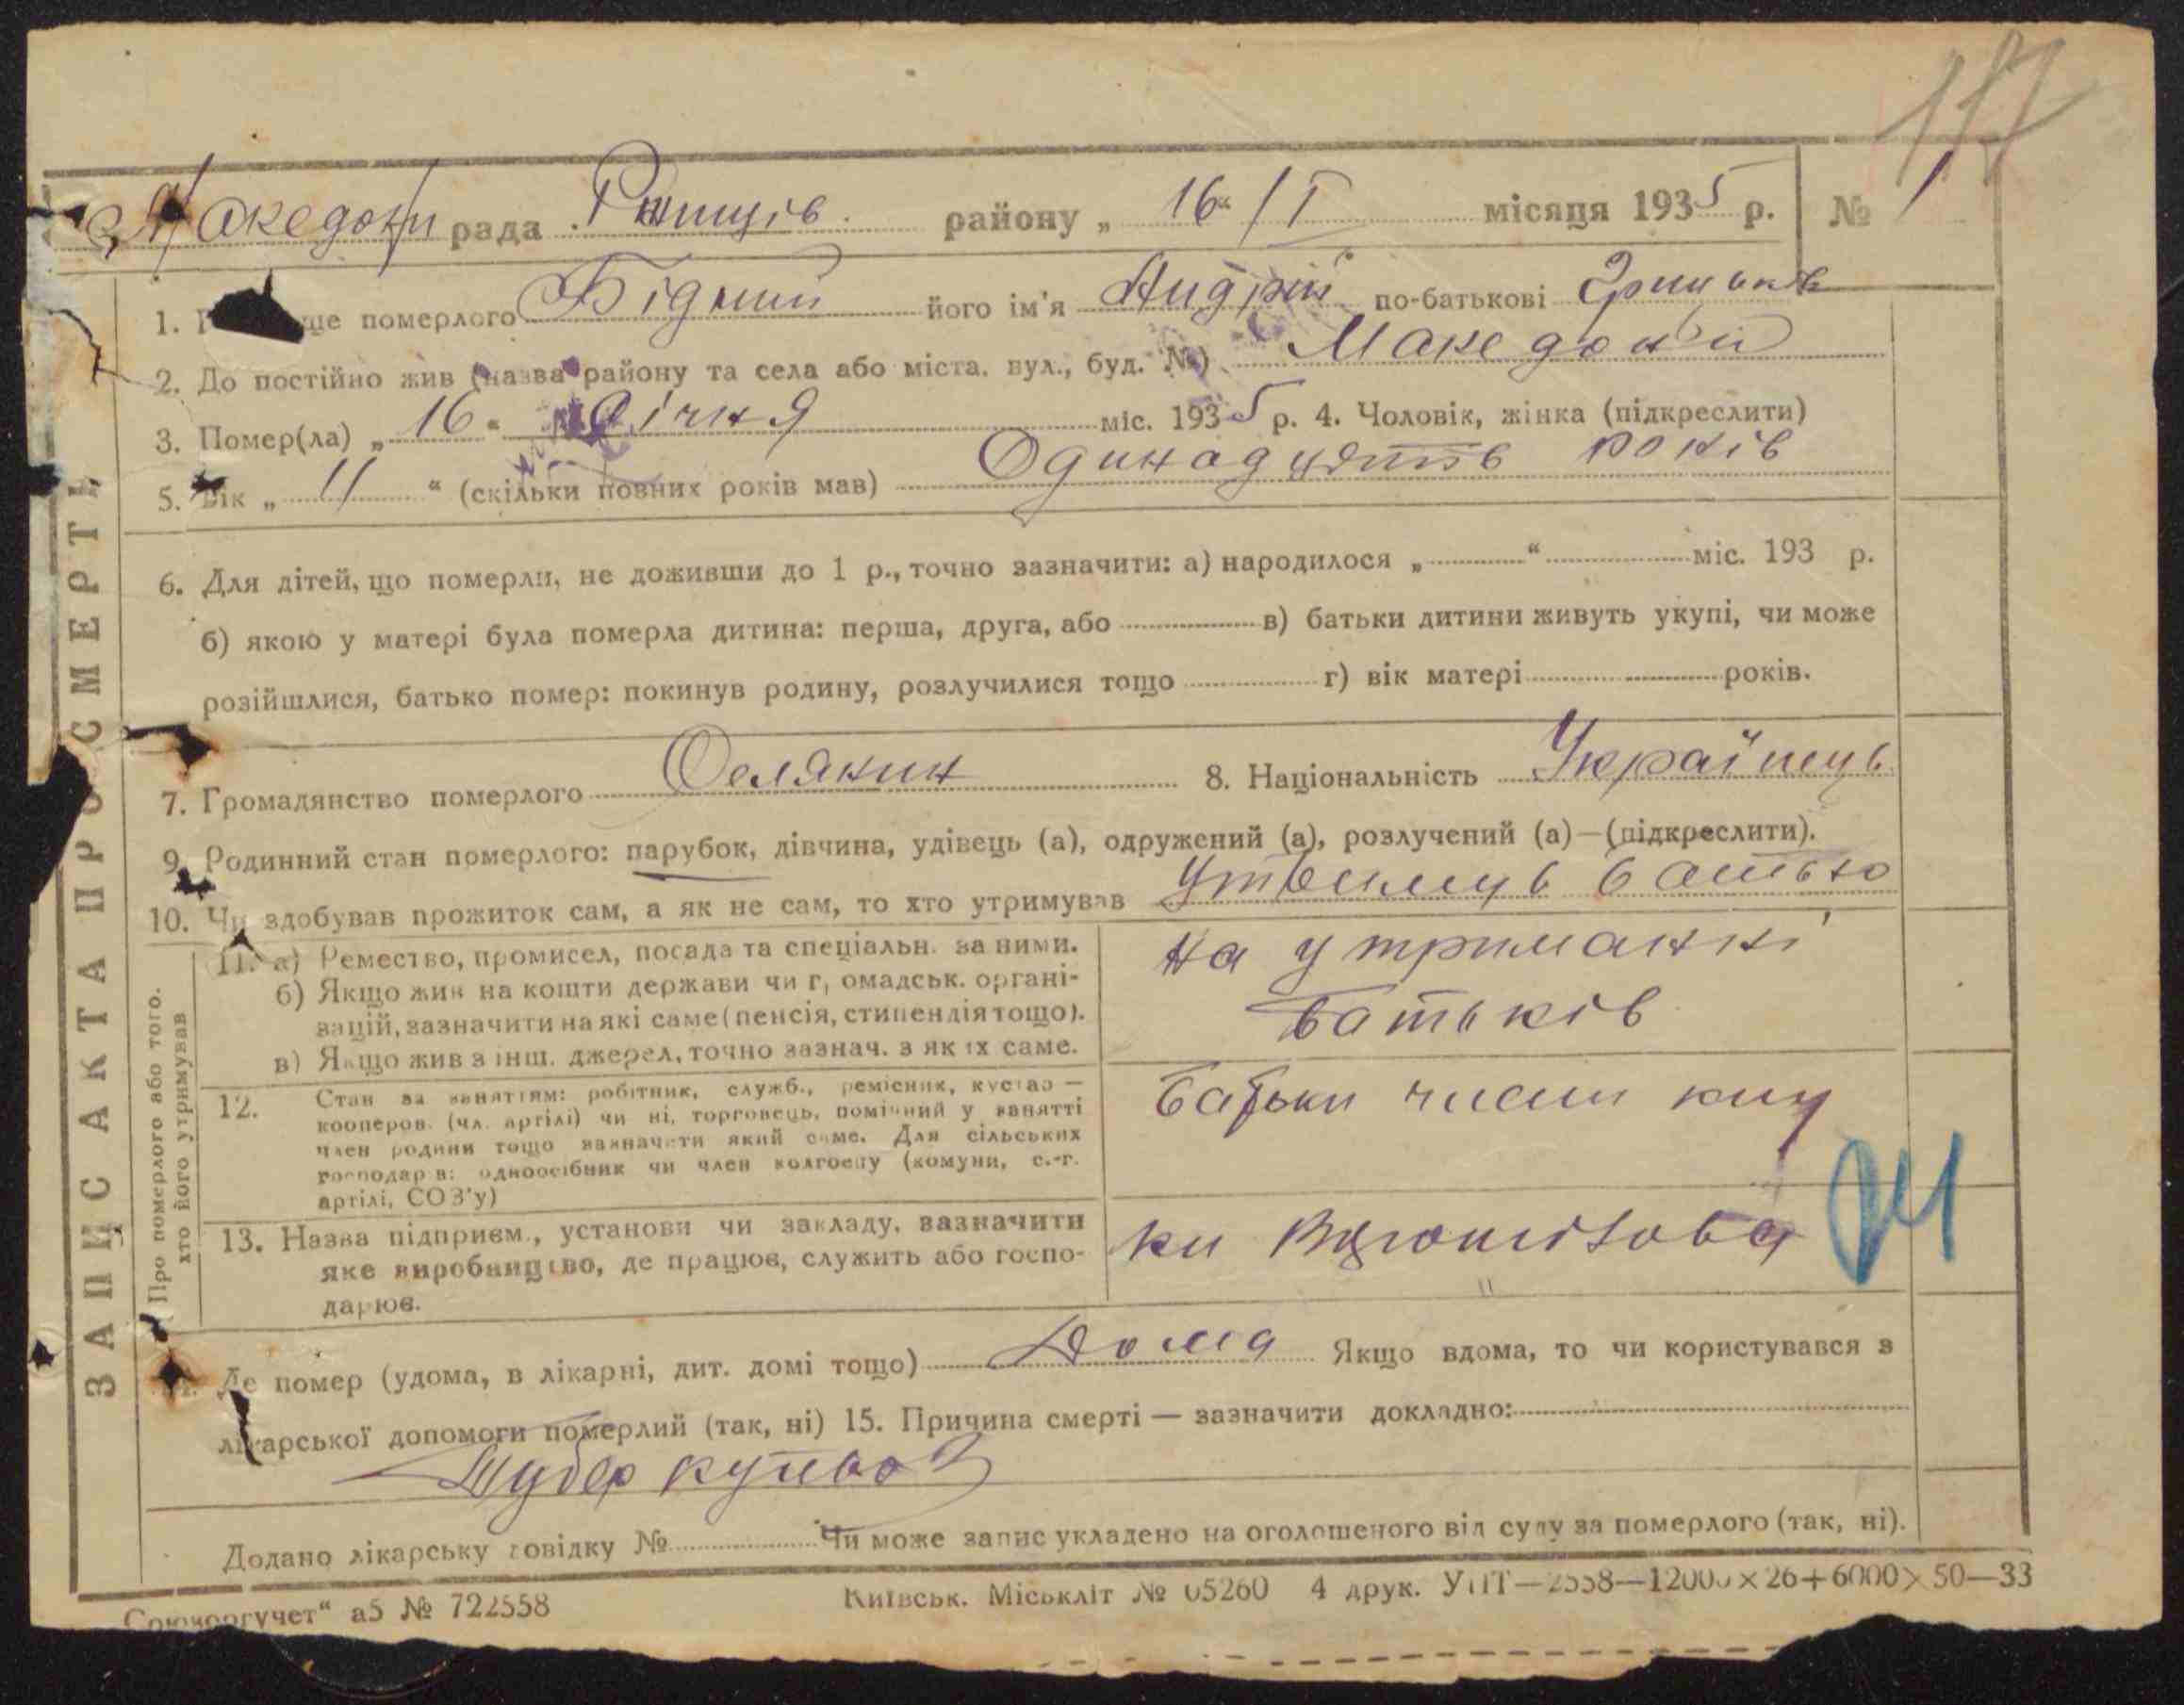 117
Македони рада Ржищів району „ 16 “ / I місяця 1935 р. № 1
ЗАПИС АКТА ПРО СМЕРТЬ
1. ще померлого Бідний його ім'я Андрій по-батькові Грицьків
2. До постійно жив (назва району та села або міста, вул., буд. №) Македоній
3. Помер(ла) „ 16 “ січня міс. 1935 р. 4. Чоловік, жінка (підкреслити)
5. Вік „ 11 “ (скільки повних років мав) Одинадцять років
6. Для дітей, що померли, не доживши до 1 р., точно зазначити: а) народилося „ “ міс. 193 р.
б) якою у матері була померла дитина: перша, друга, або в) батьки дитини живуть укупі, чи може
розійшлися, батько помер: покинув родину, розлучилися тощо г) вік матері років.
7. Громадянство померлого Селянин 8. Національність Українць
9. Родинний стан померлого: парубок, дівчина, удівець (а), одружений (а), розлучений (а)—(підкреслити).
10. Чи здобував прожиток сам, а як не сам, то хто утримував батью
Про померлого або того.
хто його утримував
11. а) Ремество, промисел, посада та спеціальн. за ними.
б) Якщо жив на кошти держави чи громадськ. органі-
зацій, зазначити на які саме (пенсія, стипендія тощо).
в) Якщо жив з інш. джерел, точно зазнач. з яких саме.
на утриманні
батьків
12. Стан за заняттям: робітник, служб., ремісник, кустар —
кооперов. (чл. артілі) чи ні, торговець, помічний у занятті
член родини тощо зазначити який саме. Для сільських
господарів: одноосібник чи член колгоспу (комуни, с.-г.
артілі, СОЗ'у)
Батьки
13. Назва підприєм., установи чи закладу, зазначити
яке виробництво, де працює, служить або госпо-
дарює.
Де помер (удома, в лікарні, дит. домі тощо) Дома Якщо вдома, то чи користувався з
лікарської допомоги померлий (так, ні) 15. Причина смерті — зазначити докладно:
Туберкульоз
Додано лікарську довідку № Чи може запис укладено на оголошеного від суду за померлого (так, ні).
Союзоргучет“ а5 № 722558 Київськ. Міськліт № 05260 4 друк. УПТ—2558—12000×26+6000×50—33